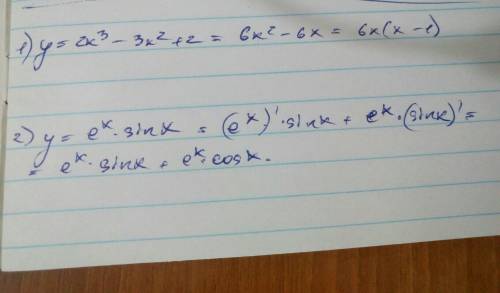 1) y = 2x³ - 3x² + 2 = 6x² - 6x = 6x(x - 1)
2) y = eˣ · sinx = (eˣ)' · sinx + eˣ · (sinx)' =
= eˣ · sinx + eˣ · cosx.